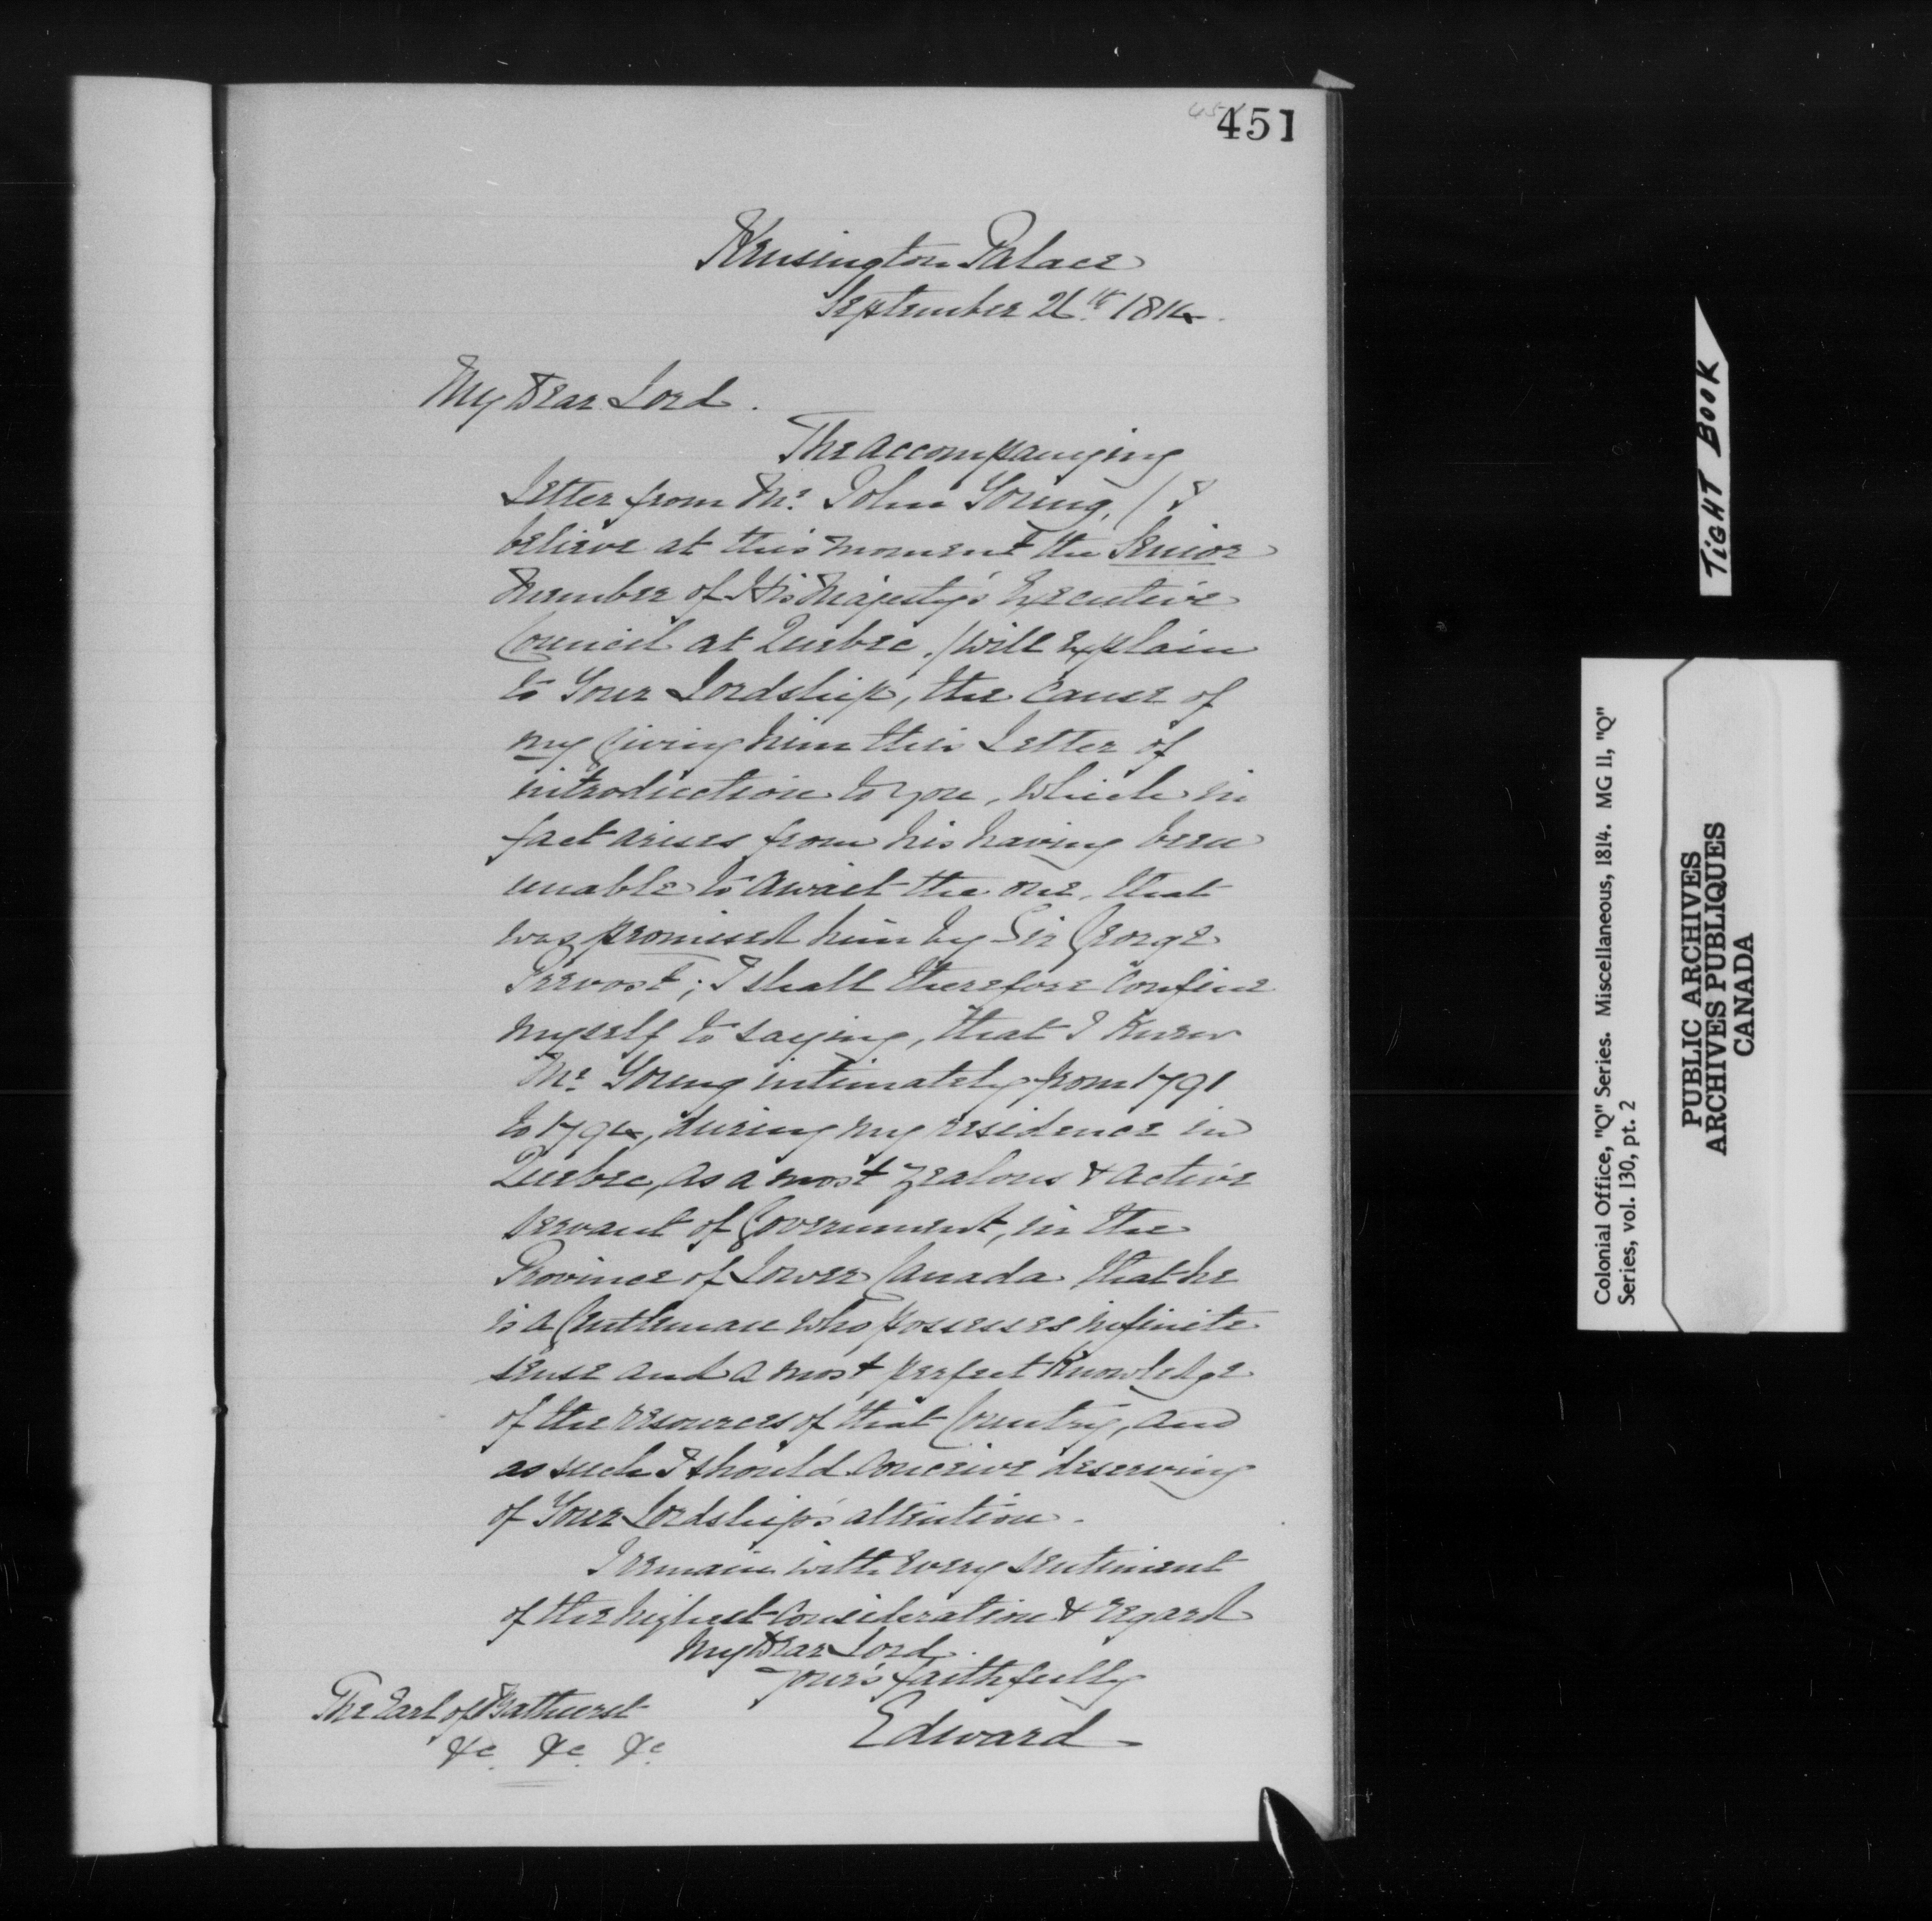 451
Kensington Palace
September 26th 1814.
My Dear Lord.
The accompanying
Letter from Mr. John Young, (I
believe at this moment the Senior
Member of His Majesty's Executive
Council at Quebec,) will explain
to Your Lordship, the cause of
my giving him this Letter of
introduction to you, which in
fact arises from his having been
unable to await the one, that
was promised him by Sir George
Prevost; I shall therefore confine
myself to saying, that I knew
Mr. Young intimately from 1791
to 1794, during my residence in
Quebec, as a most zealous & active
servant of Government, in the
Province of Lower Canada that he
is a Gentleman who possesses infinite
sense and a most perfect knowledge
of the resources of that Country, and
as such I should conceive deserving
of Your Lordship's attention.
I remain with every sentiment
of the highest consideration & regard
My Dear Lord
your's faithfully
Edward
The Earl of Bathurst
&c. &c. &c.
TIGHT BOOK
Colonial Office, "Q" Series. Miscellaneous, 1814. MG 11, "Q"
Series, vol. 130, pt. 2
PUBLIC ARCHIVES
ARCHIVES PUBLIQUES
CANADA